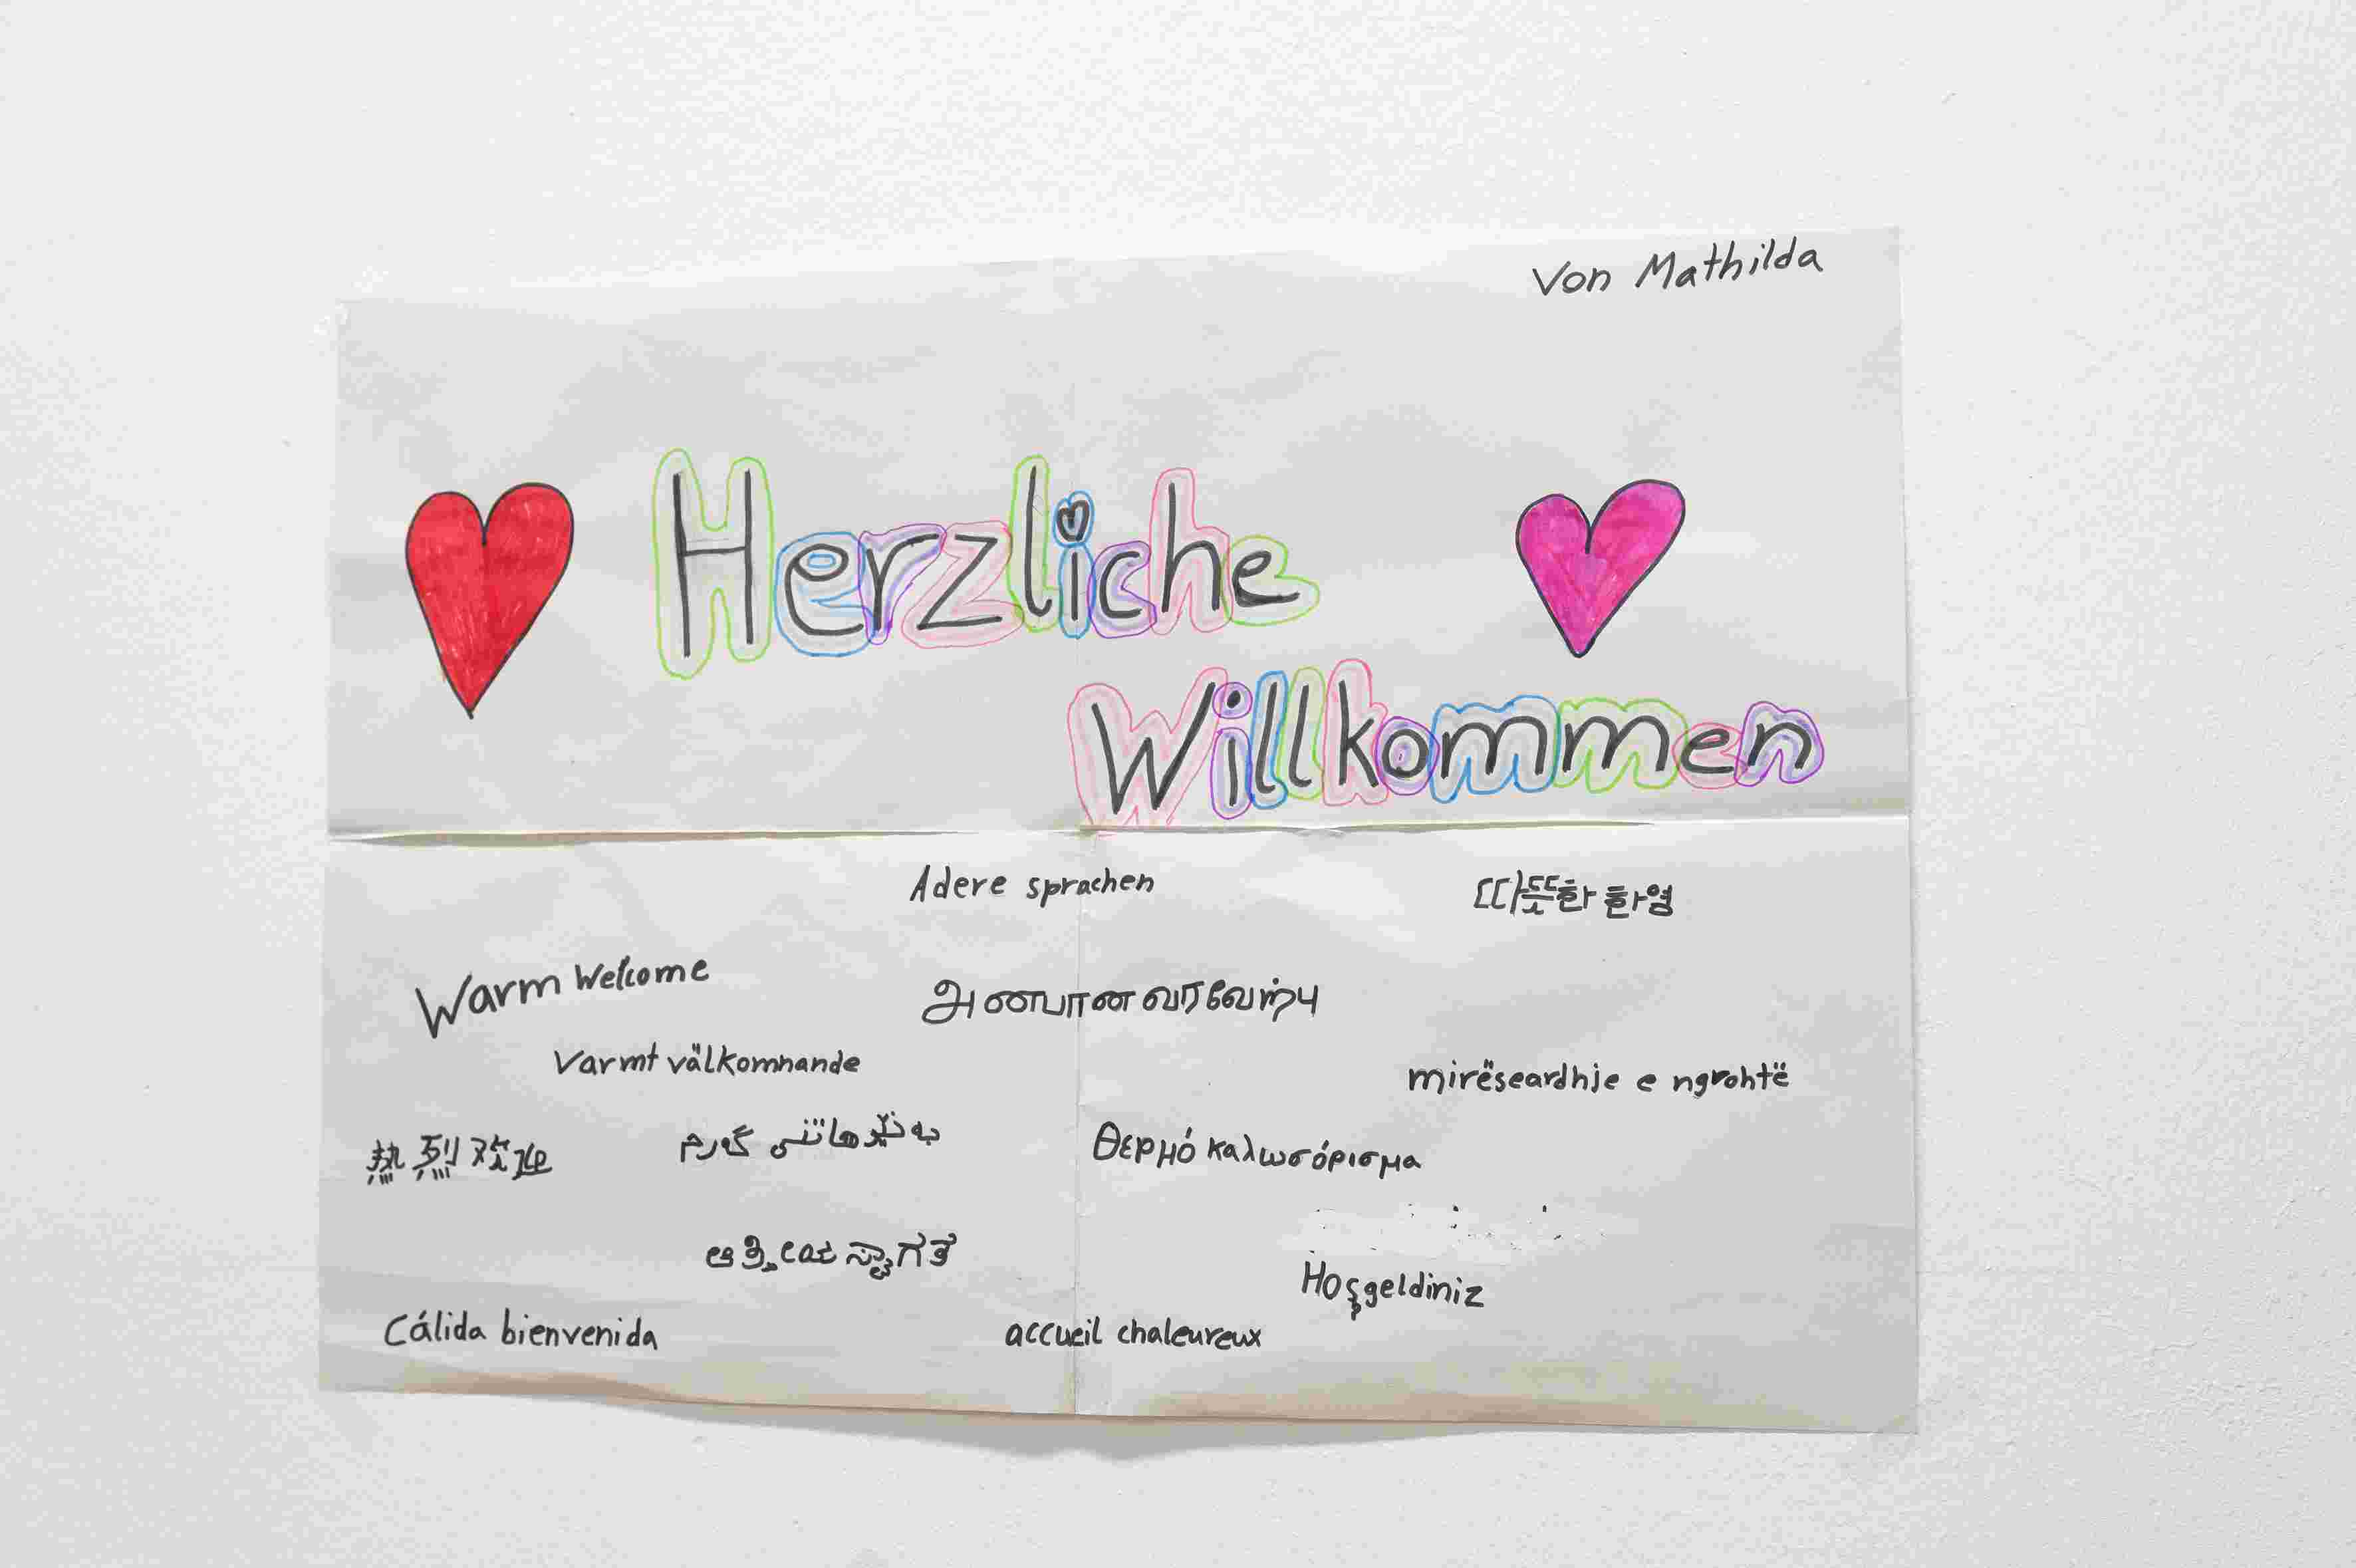 Von Mathilda
Herzliche
Willkommen
Adere sprachen
따뜻한 환영
Warm Welcome
அன்பான வரவேற்பு
Varmt välkomnande
mirëseardhje e ngrohtë
热烈欢迎
بەخێرهاتنی گەرم
θερμό καλωσόρισμα
ಆತ್ಮೀಯ ಸ್ವಾಗತ
Hoşgeldiniz
Cálida bienvenida
accueil chaleureux